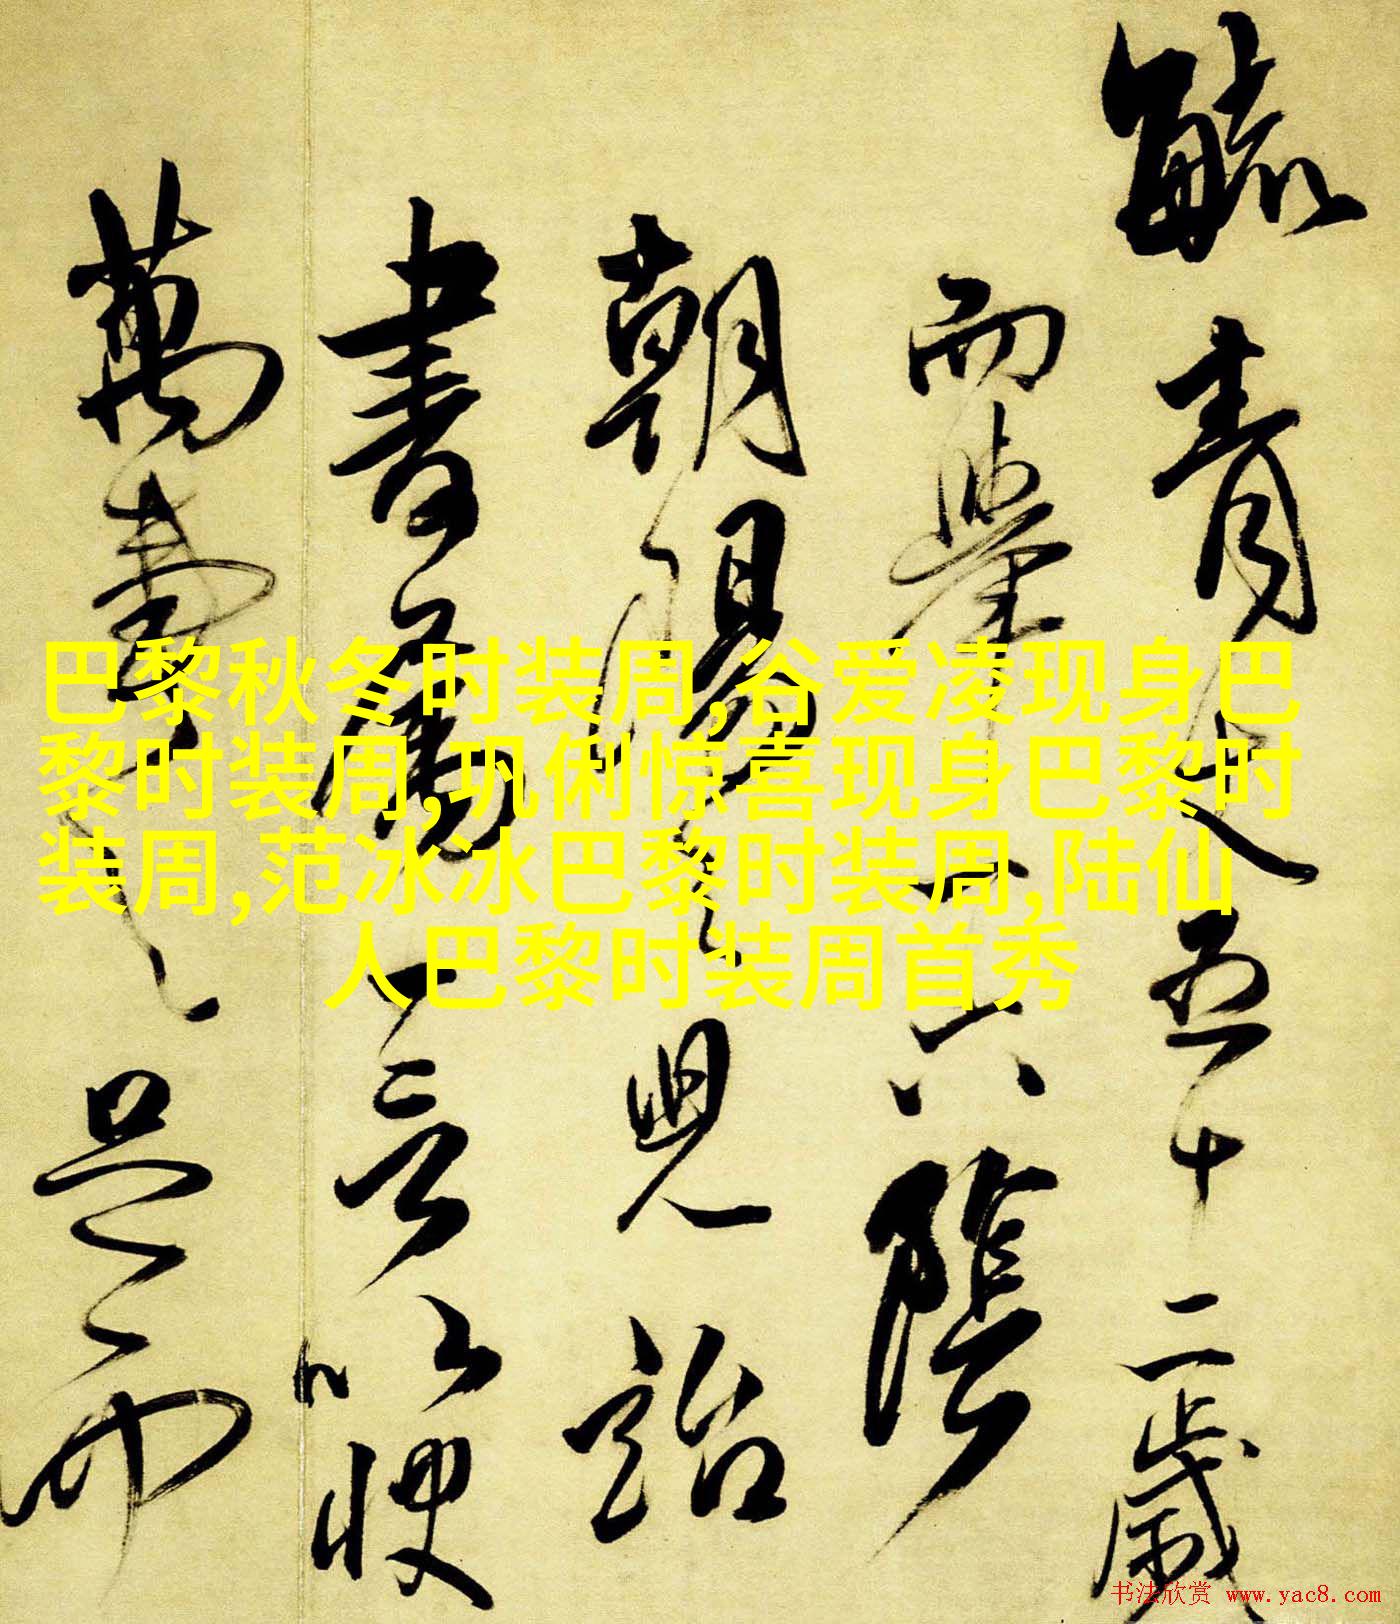 毓青史五十二歲
而舉
六陰
朝陽
見詒
書屬
言以
萬壽
是而
巴黎秋冬时装周,谷爱凌现身巴
黎时装周,巩俐惊喜现身巴黎时
装周,范冰冰巴黎时装周,陆仙
人巴黎时装周首秀
书法欣赏 www.yac8.com